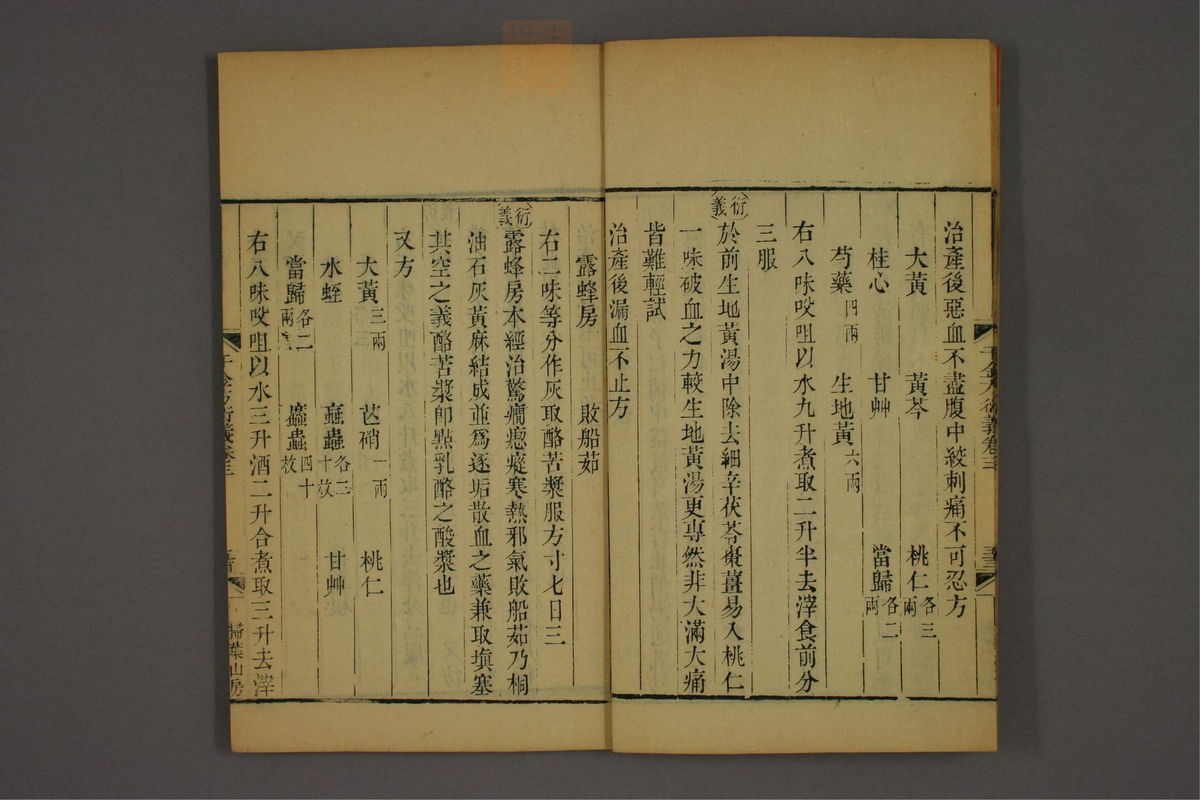 治產後惡血不盡腹中絞刺痛不可忍方
大黃　黃芩　桃仁各三兩
桂心　甘艸　當歸各二兩
芍藥四兩　生地黃六兩
右八味㕮咀以水九升煮取二升半去滓食前分
三服
衍義
於前生地黃湯中除去細辛茯苓棗薑易入桃仁
一味破血之力較生地黃湯更專然非大滿大痛
皆難輕試
治產後漏血不止方
露蜂房　敗船茹
右二味等分作灰取酪苦漿服方寸七日三
衍義
露蜂房本經治驚癇瘛瘲寒熱邪氣敗船茹乃桐
油石灰黃麻結成並爲逐垢散血之藥兼取塡塞
其空之義酪苦漿卽點乳酪之酸漿也
又方
大黃三兩　芒硝一兩　桃仁
水蛭　蝱蟲各三十枚　甘艸
當歸各二兩　䗪蟲四十枚
右八味㕮咀以水三升酒二升合煮取三升去滓
千金方衍義卷三
掃葉山房